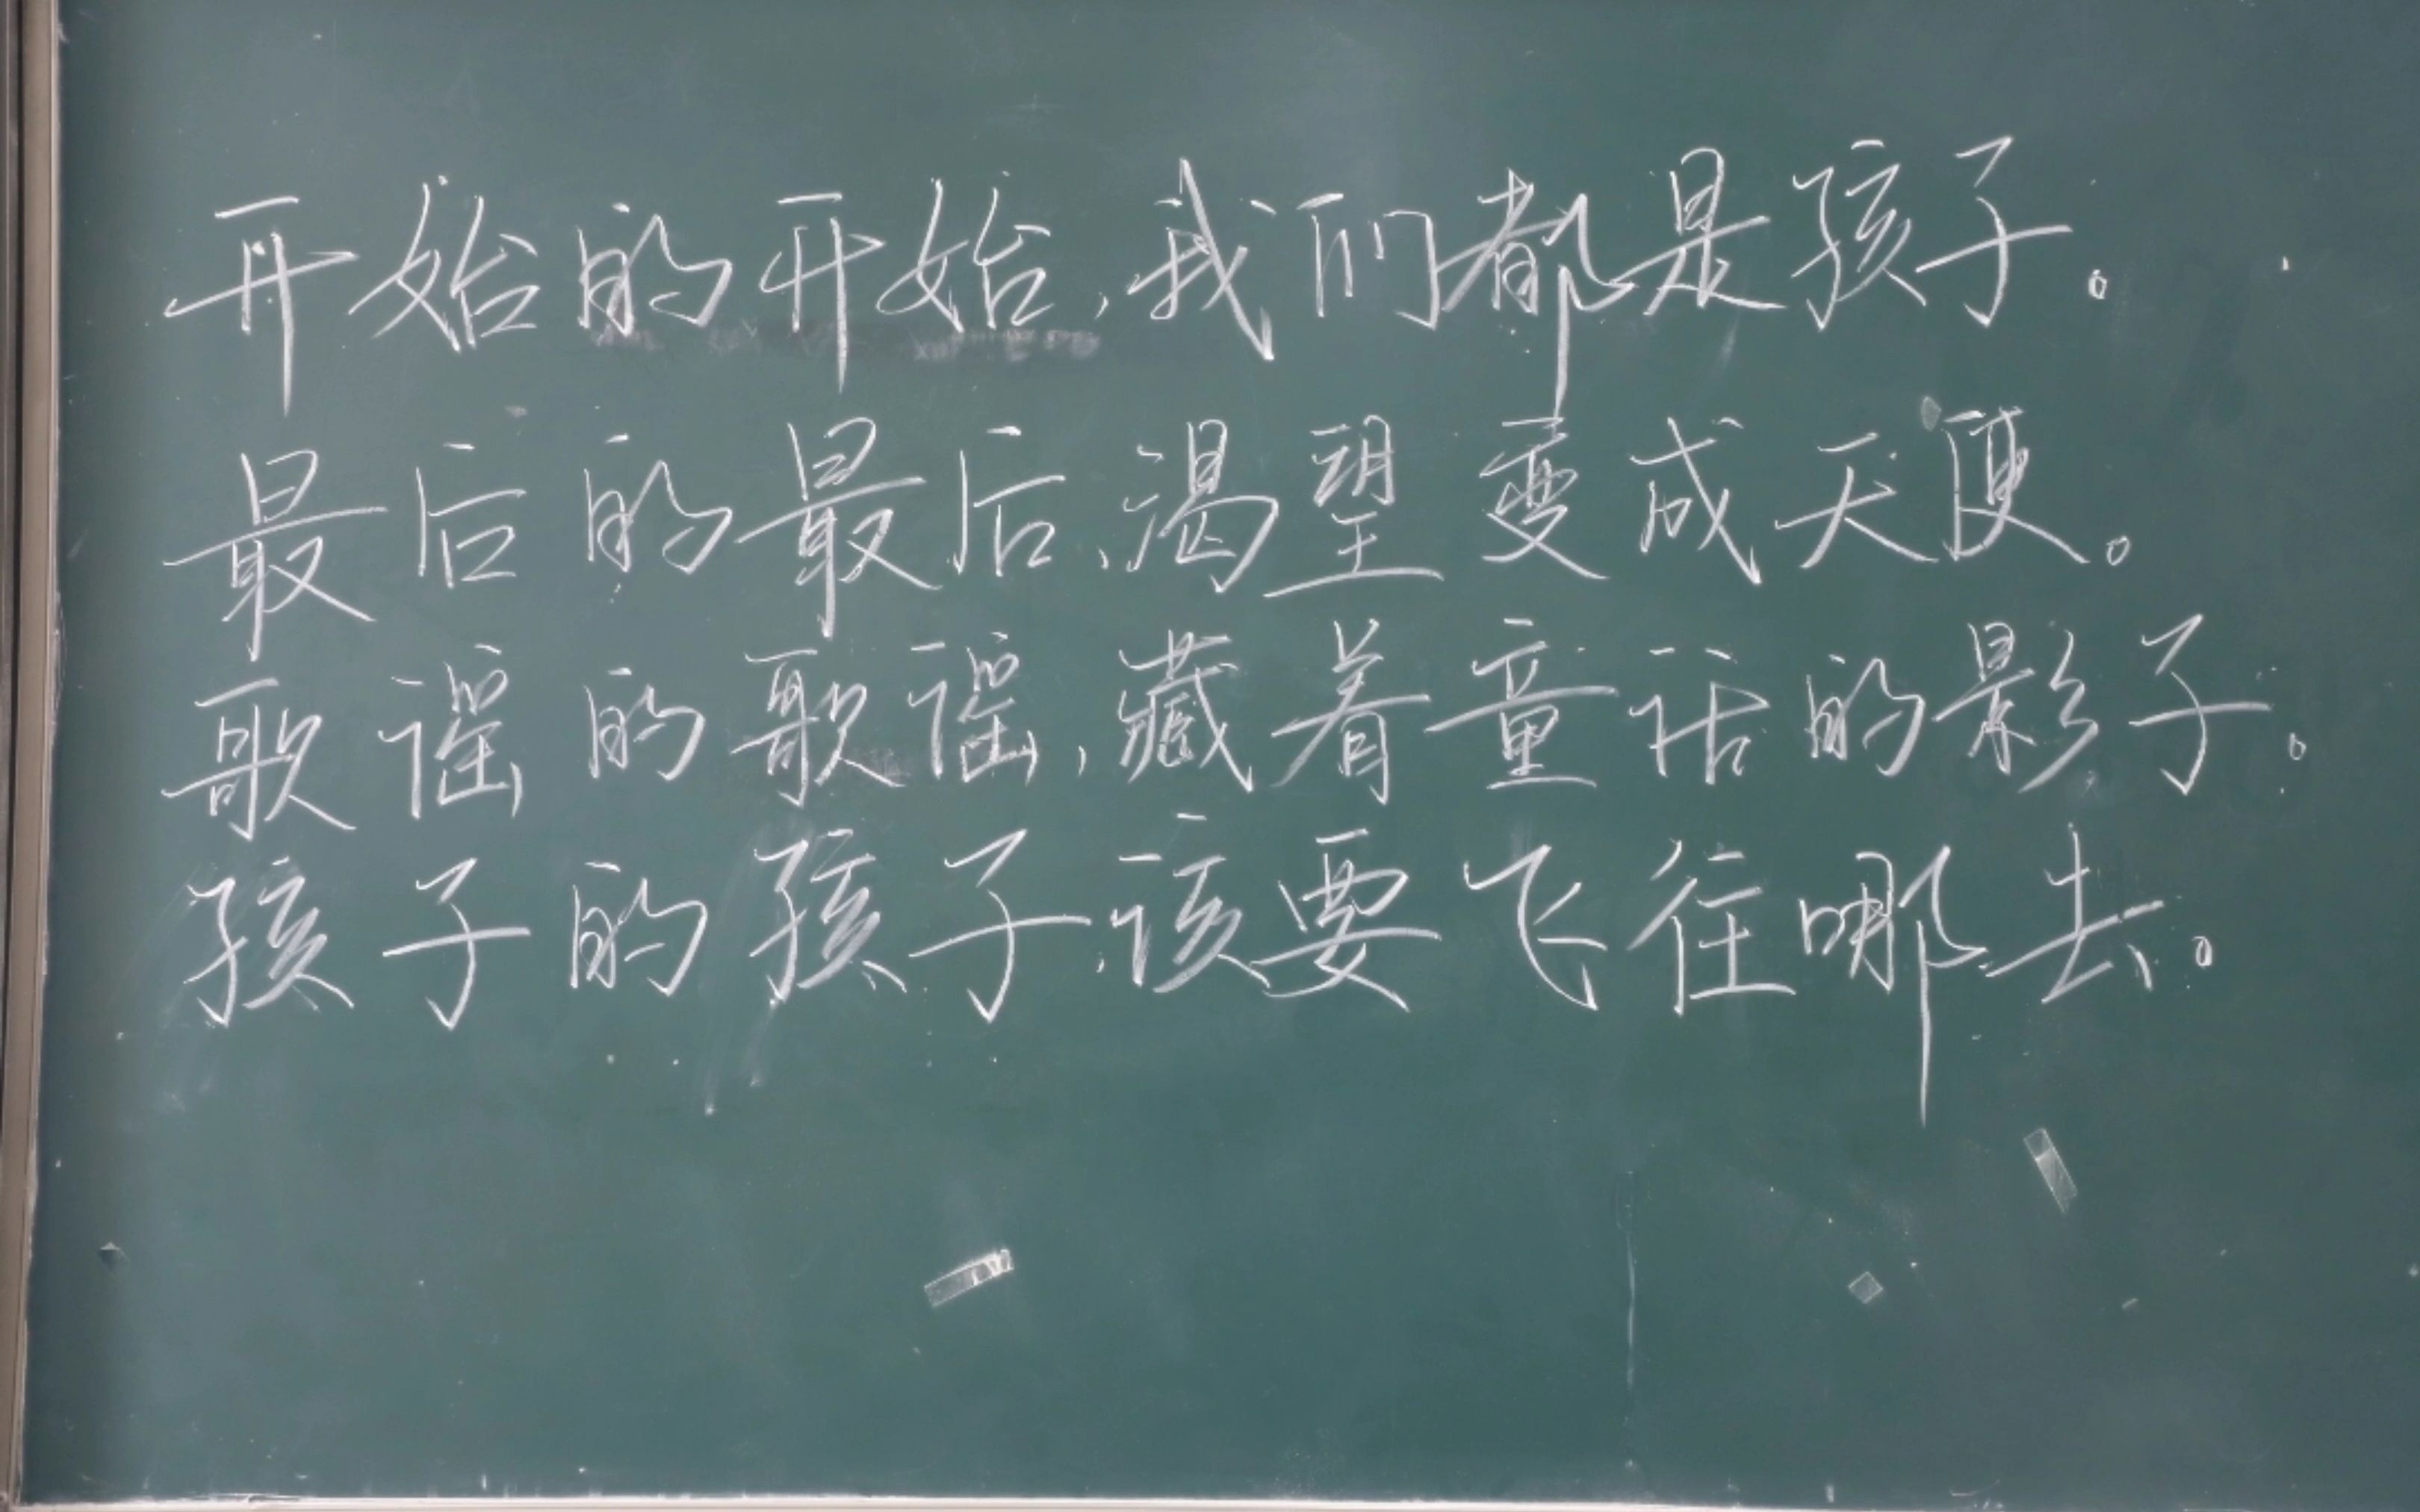 开始的开始,我们都是孩子。
最后的最后,渴望变成天使。
歌谣的歌谣,藏着童话的影子。
孩子的孩子,该要飞往哪去。